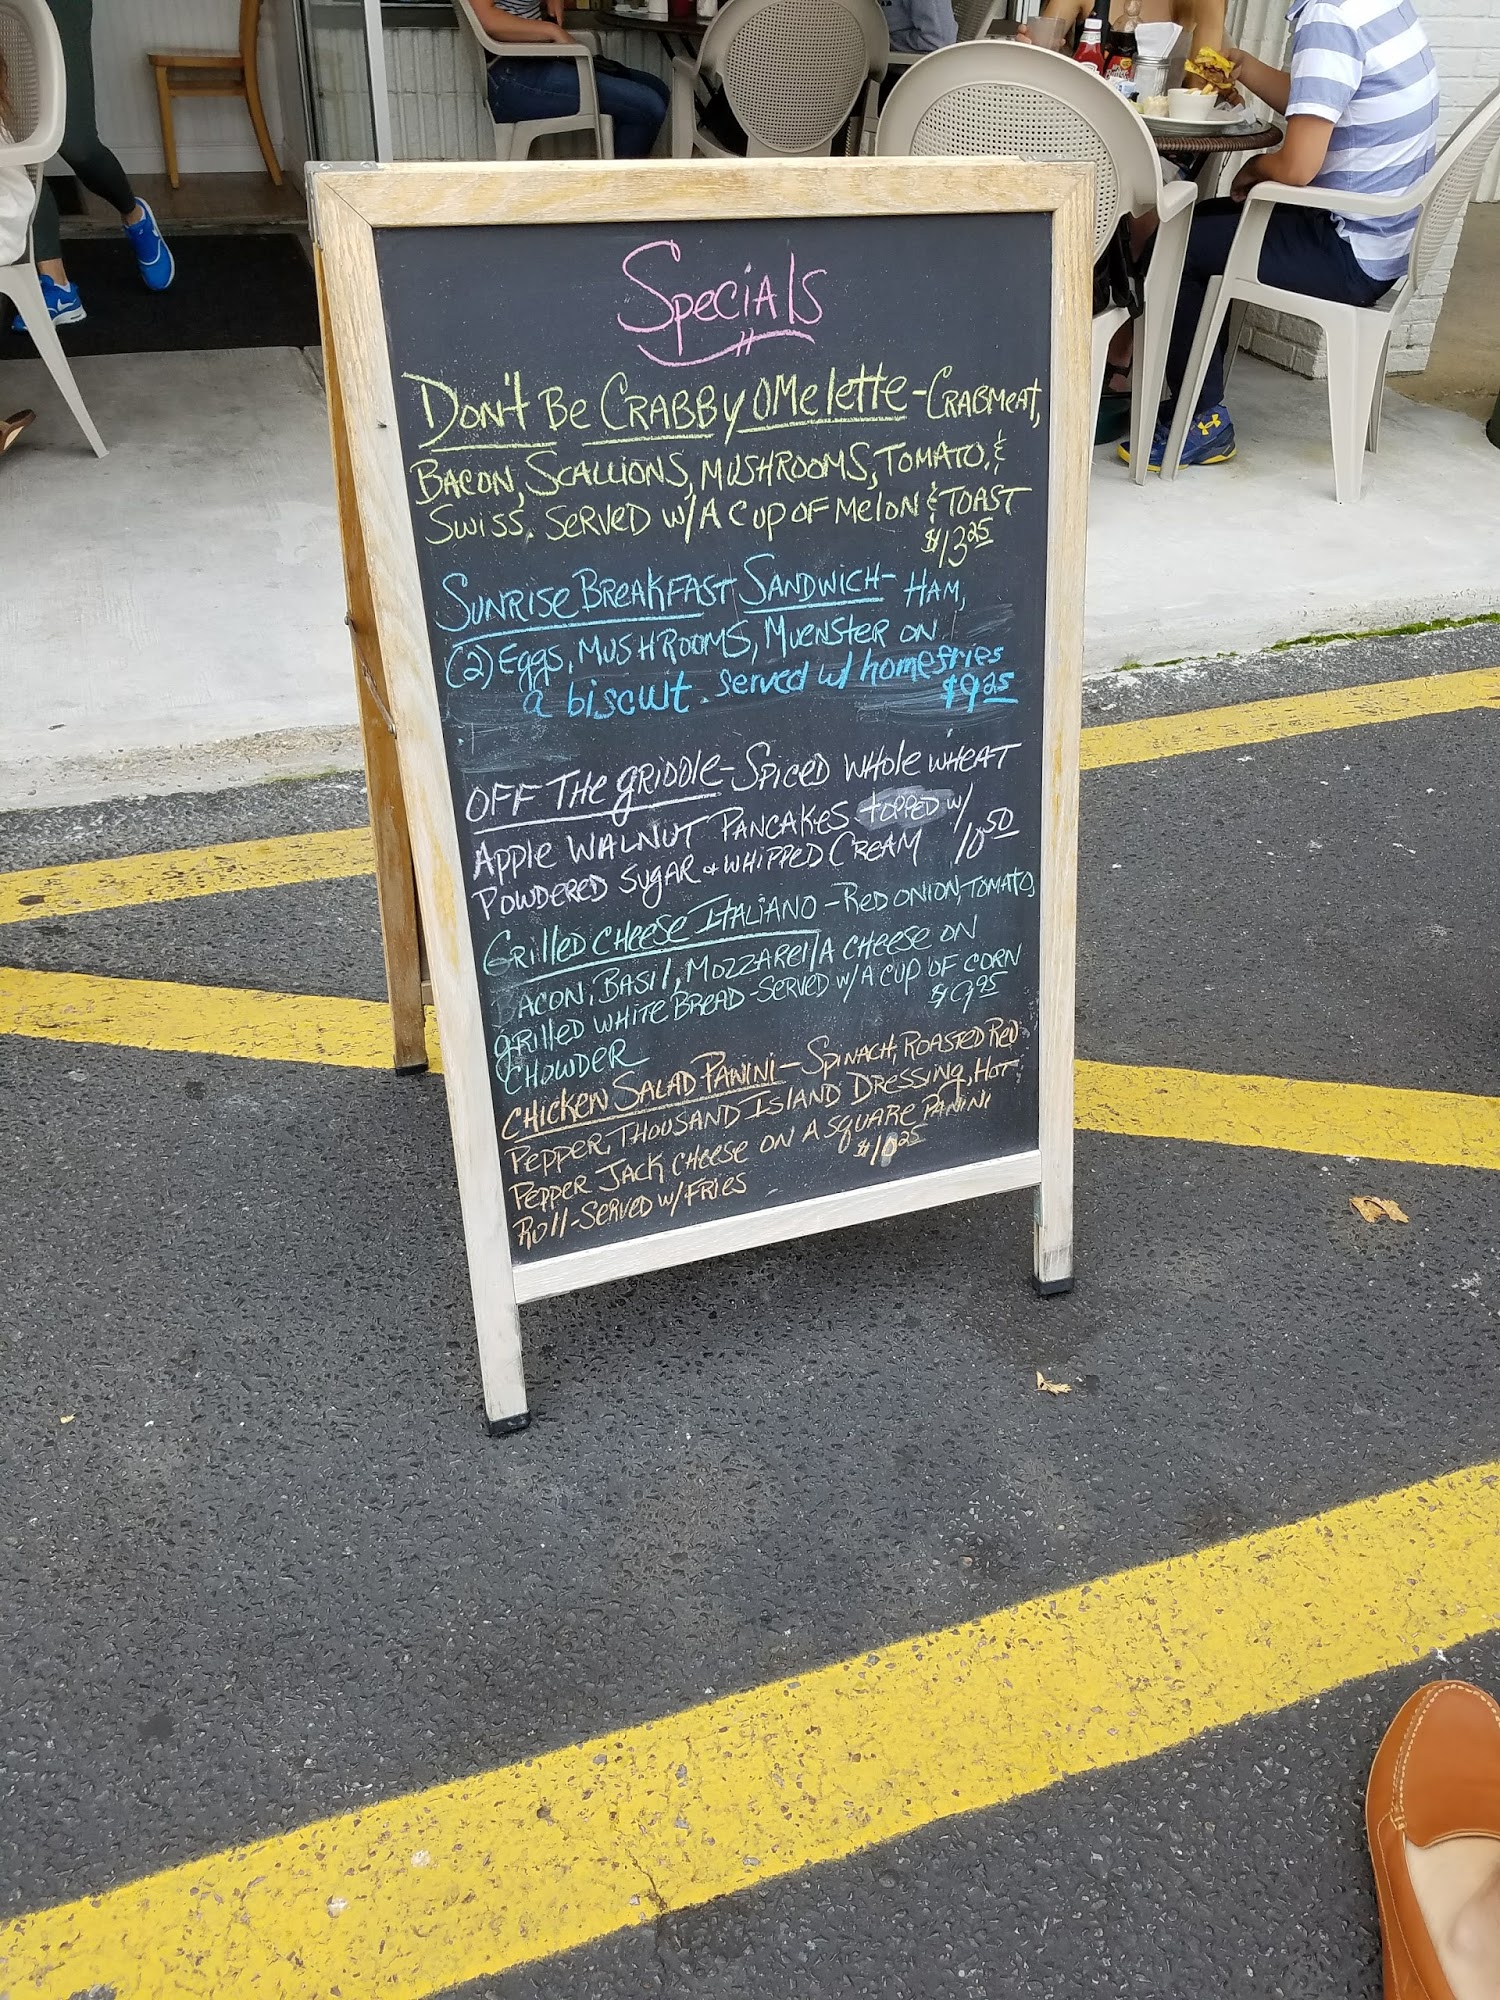 Specials
Don't Be Crabby Omelette - Crabmeat,
Bacon, Scallions, Mushrooms, Tomato, &
Swiss. Served w/ A Cup of Melon & Toast
$13.25
Sunrise Breakfast Sandwich - Ham,
(2) Eggs, Mushrooms, Muenster on
a biscuit. served w/ homefries
$9.25
Off The Griddle - Spiced Whole Wheat
Apple Walnut Pancakes topped w/
Powdered Sugar & Whipped Cream 10.50
Grilled Cheese Italiano - Red Onion, Tomato,
Bacon, Basil, Mozzarella Cheese on
grilled White Bread - Served w/ A Cup of Corn
Chowder $9.95
Chicken Salad Panini - Spinach, Roasted Red
Pepper, Thousand Island Dressing, Hot
Pepper Jack Cheese on A Square Panini
Roll - Served w/ Fries $10.25